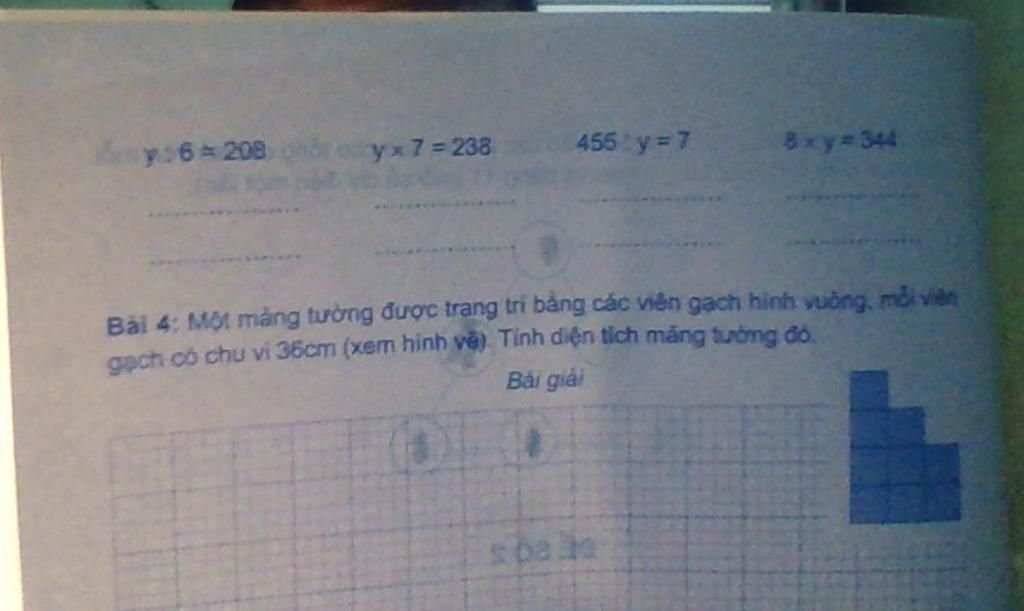 y : 6 = 208 y × 7 = 238 455 : y = 7 8 × y = 344
Bài 4: Một mảng tường được trang trí bằng các viên gạch hình vuông, mỗi viên
gạch có chu vi 36cm (xem hình vẽ). Tính diện tích mảng tường đó.
Bài giải